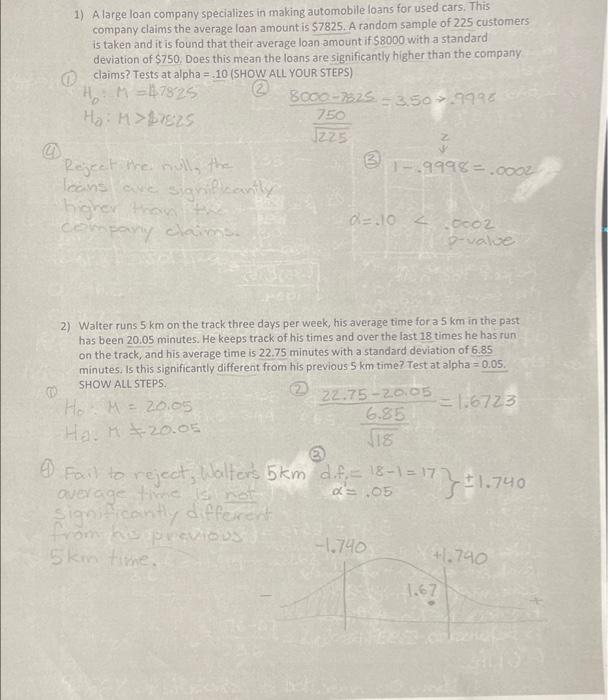 1) A large loan company specializes in making automobile loans for used cars. This
company claims the average loan amount is $7825. A random sample of 225 customers
is taken and it is found that their average loan amount if $8000 with a standard
deviation of $750. Does this mean the loans are significantly higher than the company
claims? Tests at alpha = .10 (SHOW ALL YOUR STEPS)
① H₀: M = $7825
Ha: M > $7825
② 8000-7825 = 3.50 → .9998
750
√225
z
↓
③ 1-.9998 = .0002
α = .10 < .0002
p-value
④ Reject the null, the
loans are significantly
higher than the
company claims.
2) Walter runs 5 km on the track three days per week, his average time for a 5 km in the past
has been 20.05 minutes. He keeps track of his times and over the last 18 times he has run
on the track, and his average time is 22.75 minutes with a standard deviation of 6.85
minutes. Is this significantly different from his previous 5 km time? Test at alpha = 0.05.
SHOW ALL STEPS.
① H₀: M = 20.05
Ha: M ≠ 20.05
② 22.75-20.05 = 1.6723
6.85
√18
③
d.f. = 18-1 = 17 } ±1.740
α = .05
④ Fail to reject, Walter's 5km
average time is not
significantly different
from his previous
5km time.
-1.740
+1.740
1.67
- +